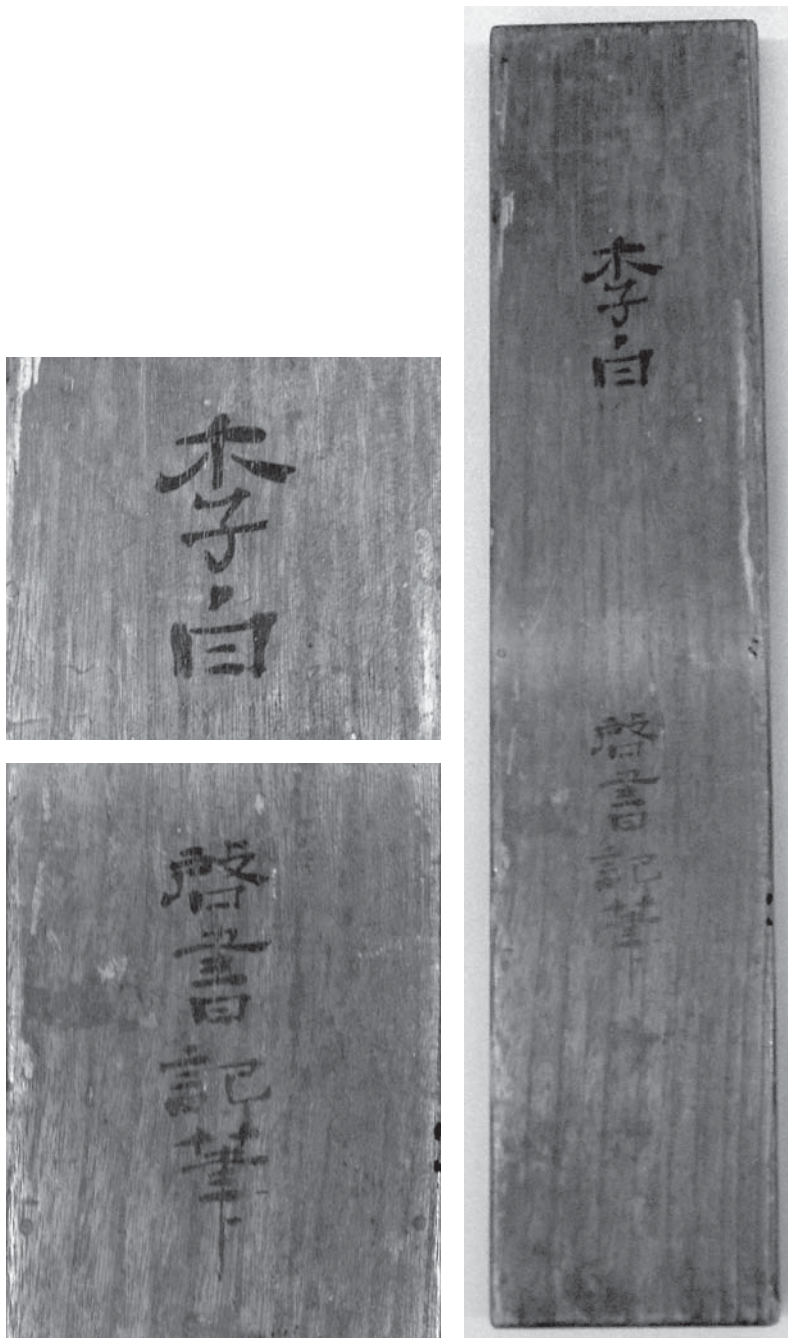 李白
啓書記筆
李白
啓書記筆